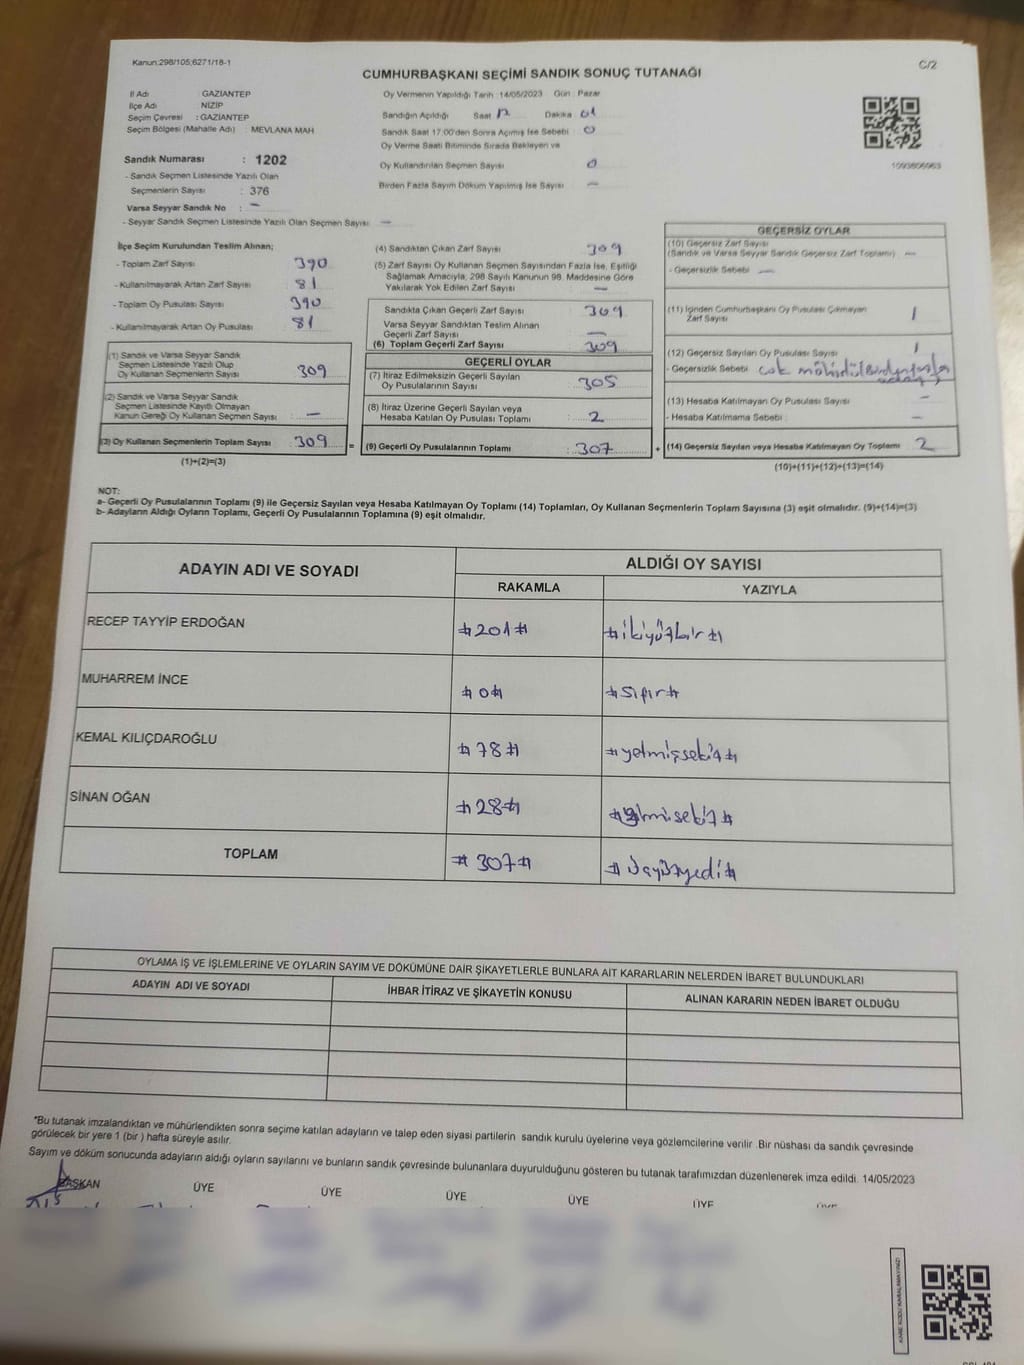 Kanun:298/105;6271/18-1
C/2
CUMHURBAŞKANI SEÇİMİ SANDIK SONUÇ TUTANAĞI
İl Adı GAZİANTEP
İlçe Adı NİZİP
Seçim Çevresi : GAZİANTEP
Seçim Bölgesi (Mahalle Adı) : MEVLANA MAH
Sandık Numarası : 1202
- Sandık Seçmen Listesinde Yazılı Olan
Seçmenlerin Sayısı : 376
Varsa Seyyar Sandık No : -
- Seyyar Sandık Seçmen Listesinde Yazılı Olan Seçmen Sayısı -
Oy Vermenin Yapıldığı Tarih : 14/05/2023 Gün : Pazar
Sandığın Açıldığı Saat Dakika 01
Sandık Saat 17:00'den Sonra Açılmış İse Sebebi : 0
Oy Verme Saati Bitiminde Sırada Bekleyen ve
Oy Kullandırılan Seçmen Sayısı 0
Birden Fazla Sayım Döküm Yapılmış İse Sayısı -
1093806963
İlçe Seçim Kurulundan Teslim Alınan;
- Toplam Zarf Sayısı 390
- Kullanılmayarak Artan Zarf Sayısı : 81
- Toplam Oy Pusulası Sayısı : 390
- Kullanılmayarak Artan Oy Pusulası : 81
(1) Sandık ve Varsa Seyyar Sandık
Seçmen Listesinde Yazılı Olup
Oy Kullanan Seçmenlerin Sayısı : 309
(2) Sandık ve Varsa Seyyar Sandık
Seçmen Listesinde Kayıtlı Olmayan
Kanun Gereği Oy Kullanan Seçmen Sayısı : -
(3) Oy Kullanan Seçmenlerin Toplam Sayısı : 309 =
(1)+(2)=(3)
(4) Sandıktan Çıkan Zarf Sayısı : 309
(5) Zarf Sayısı Oy Kullanan Seçmen Sayısından Fazla İse, Eşitliği
Sağlamak Amacıyla; 298 Sayılı Kanunun 98. Maddesine Göre
Yakılarak Yok Edilen Zarf Sayısı : -
Sandıkta Çıkan Geçerli Zarf Sayısı : 309
Varsa Seyyar Sandıktan Teslim Alınan
Geçerli Zarf Sayısı : -
(6) Toplam Geçerli Zarf Sayısı : 309
GEÇERLİ OYLAR
(7) İtiraz Edilmeksizin Geçerli Sayılan
Oy Pusulalarının Sayısı : 305
(8) İtiraz Üzerine Geçerli Sayılan veya
Hesaba Katılan Oy Pusulası Toplamı : 2
(9) Geçerli Oy Pusulalarının Toplamı : 307 +
GEÇERSİZ OYLAR
(10) Geçersiz Zarf Sayısı
(Sandık ve Varsa Seyyar Sandık Geçersiz Zarf Toplamı) : -
- Geçersizlik Sebebi : -
(11) İçinden Cumhurbaşkanı Oy Pusulası Çıkmayan
Zarf Sayısı 1
(12) Geçersiz Sayılan Oy Pusulası Sayısı 1
- Geçersizlik Sebebi : çok
(13) Hesaba Katılmayan Oy Pusulası Sayısı : -
- Hesaba Katılmama Sebebi : -
(14) Geçersiz Sayılan veya Hesaba Katılmayan Oy Toplamı : 2
(10)+(11)+(12)+(13)=(14)
NOT:
a- Geçerli Oy Pusulalarının Toplamı (9) ile Geçersiz Sayılan veya Hesaba Katılmayan Oy Toplamı (14) Toplamları, Oy Kullanan Seçmenlerin Toplam Sayısına (3) eşit olmalıdır. (9)+(14)=(3)
b- Adayların Aldığı Oyların Toplamı, Geçerli Oy Pusulalarının Toplamına (9) eşit olmalıdır.
ADAYIN ADI VE SOYADI ALDIĞI OY SAYISI
RAKAMLA YAZIYLA
RECEP TAYYİP ERDOĞAN #201# #ikiyüzbir#
MUHARREM İNCE #0# #sıfır#
KEMAL KILIÇDAROĞLU #78# #yetmişsekiz#
SİNAN OĞAN #28# #yirmisekiz#
TOPLAM #307# #üçyüzyedi#
OYLAMA İŞ VE İŞLEMLERİNE VE OYLARIN SAYIM VE DÖKÜMÜNE DAİR ŞİKAYETLERLE BUNLARA AİT KARARLARIN NELERDEN İBARET BULUNDUKLARI
ADAYIN ADI VE SOYADI İHBAR İTİRAZ VE ŞİKAYETİN KONUSU ALINAN KARARIN NEDEN İBARET OLDUĞU
*Bu tutanak imzalandıktan ve mühürlendikten sonra seçime katılan adayların ve talep eden siyasi partilerin sandık kurulu üyelerine veya gözlemcilerine verilir. Bir nüshası da sandık çevresinde
görülecek bir yere 1 (bir ) hafta süreyle asılır.
Sayım ve döküm sonucunda adayların aldığı oyların sayılarını ve bunların sandık çevresinde bulunanlara duyurulduğunu gösteren bu tutanak tarafımızdan düzenlenerek imza edildi. 14/05/2023
BAŞKAN ÜYE ÜYE ÜYE ÜYE ÜYE